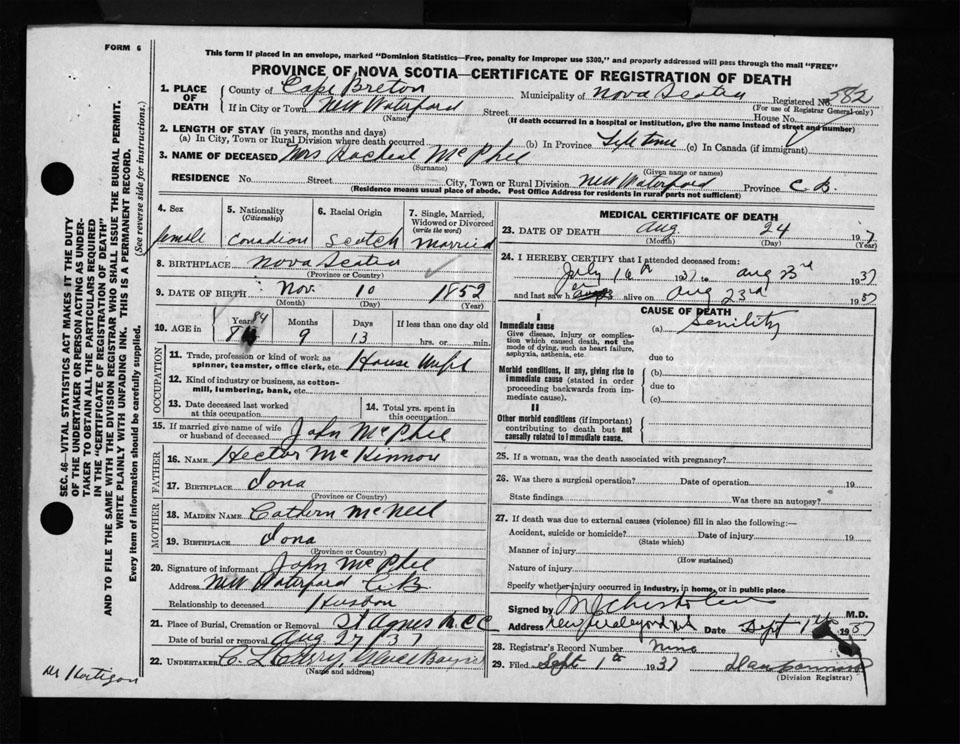 FORM 6
This form if placed in an envelope, marked "Dominion Statistics—Free, penalty for improper use $300," and properly addressed will pass through the mail "FREE"
PROVINCE OF NOVA SCOTIA—CERTIFICATE OF REGISTRATION OF DEATH
1. PLACE OF DEATH
County of Cape Breton Municipality of Nova Scotia Registered No. 382
(For use of Registrar General only)
If in City or Town New Waterford Street House No.
(Name) (If death occurred in a hospital or institution, give the name instead of street and number)
2. LENGTH OF STAY (in years, months and days)
(a) In City, Town or Rural Division where death occurred (b) In Province Life time (c) In Canada (if immigrant)
3. NAME OF DECEASED Mrs Racheal McPhee
(Surname) (Given name or names)
RESIDENCE No. Street City, Town or Rural Division New Waterford Province C.B.
(Residence means usual place of abode. Post Office Address for residents in rural parts not sufficient)
4. Sex female
5. Nationality (Citizenship) Canadian
6. Racial Origin Scotch
7. Single, Married, Widowed or Divorced (write the word) married
8. BIRTHPLACE Nova Scotia
(Province or Country)
9. DATE OF BIRTH Nov. 10 1852
(Month) (Day) (Year)
10. AGE in Years 84 Months 9 Days 13 If less than one day old hrs. or min.
OCCUPATION
11. Trade, profession or kind of work as spinner, teamster, office clerk, etc. House Wife
12. Kind of industry or business, as cotton-mill, lumbering, bank, etc.
13. Date deceased last worked at this occupation
14. Total yrs. spent in this occupation
15. If married give name of wife or husband of deceased John McPhee
FATHER
16. NAME Hector McKinnon
17. BIRTHPLACE Iona
(Province or Country)
MOTHER
18. MAIDEN NAME Cathern McNeil
19. BIRTHPLACE Iona
(Province or Country)
20. Signature of informant John McPhee
Address New Waterford C.B.
Relationship to deceased Husbon
21. Place of Burial, Cremation or Removal St Agnes
Date of burial or removal Aug 27 37
22. UNDERTAKER
(Name and address)
MEDICAL CERTIFICATE OF DEATH
23. DATE OF DEATH Aug 24 1937
(Month) (Day) (Year)
24. I HEREBY CERTIFY that I attended deceased from:
July 16th 1937 to Aug 23rd 1937
and last saw her alive on Aug 23rd 1937
CAUSE OF DEATH
I
Immediate cause
Give disease, injury or complication which caused death, not the mode of dying, such as heart failure, asphyxia, asthenia, etc.
(a) Senility
due to
Morbid conditions, if any, giving rise to immediate cause (stated in order proceeding backwards from immediate cause).
(b)
due to
(c)
II
Other morbid conditions (if important) contributing to death but not causally related to immediate cause.
25. If a woman, was the death associated with pregnancy?
26. Was there a surgical operation? Date of operation 19
State findings Was there an autopsy?
27. If death was due to external causes (violence) fill in also the following:—
Accident, suicide or homicide? Date of injury 19
(State which)
Manner of injury
(How sustained)
Nature of injury
Specify whether injury occurred in industry, in home, or in public place
Signed by M.D.
Address Date Sept 1937
28. Registrar's Record Number
29. Filed Sept 1st 1937
(Division Registrar)
SEC. 46—VITAL STATISTICS ACT MAKES IT THE DUTY
OF THE UNDERTAKER OR PERSON ACTING AS UNDER-
TAKER TO OBTAIN ALL THE PARTICULARS REQUIRED
IN THE "CERTIFICATE OF REGISTRATION OF DEATH"
AND TO FILE THE SAME WITH THE DIVISION REGISTRAR WHO SHALL ISSUE THE BURIAL PERMIT.
WRITE PLAINLY WITH UNFADING INK. THIS IS A PERMANENT RECORD.
Every item of information should be carefully supplied.
(See reverse side for instructions.)